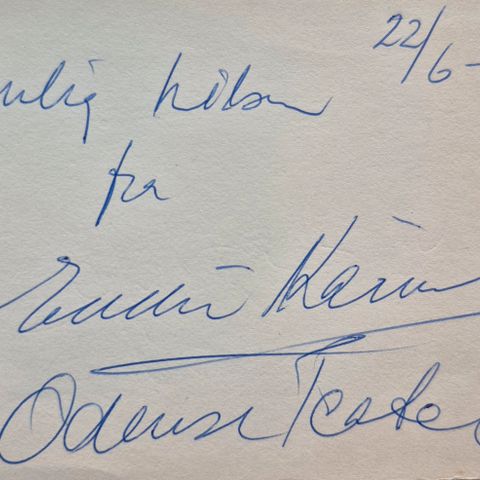 22/6-
nlig hilsen
fra
Odense Teate